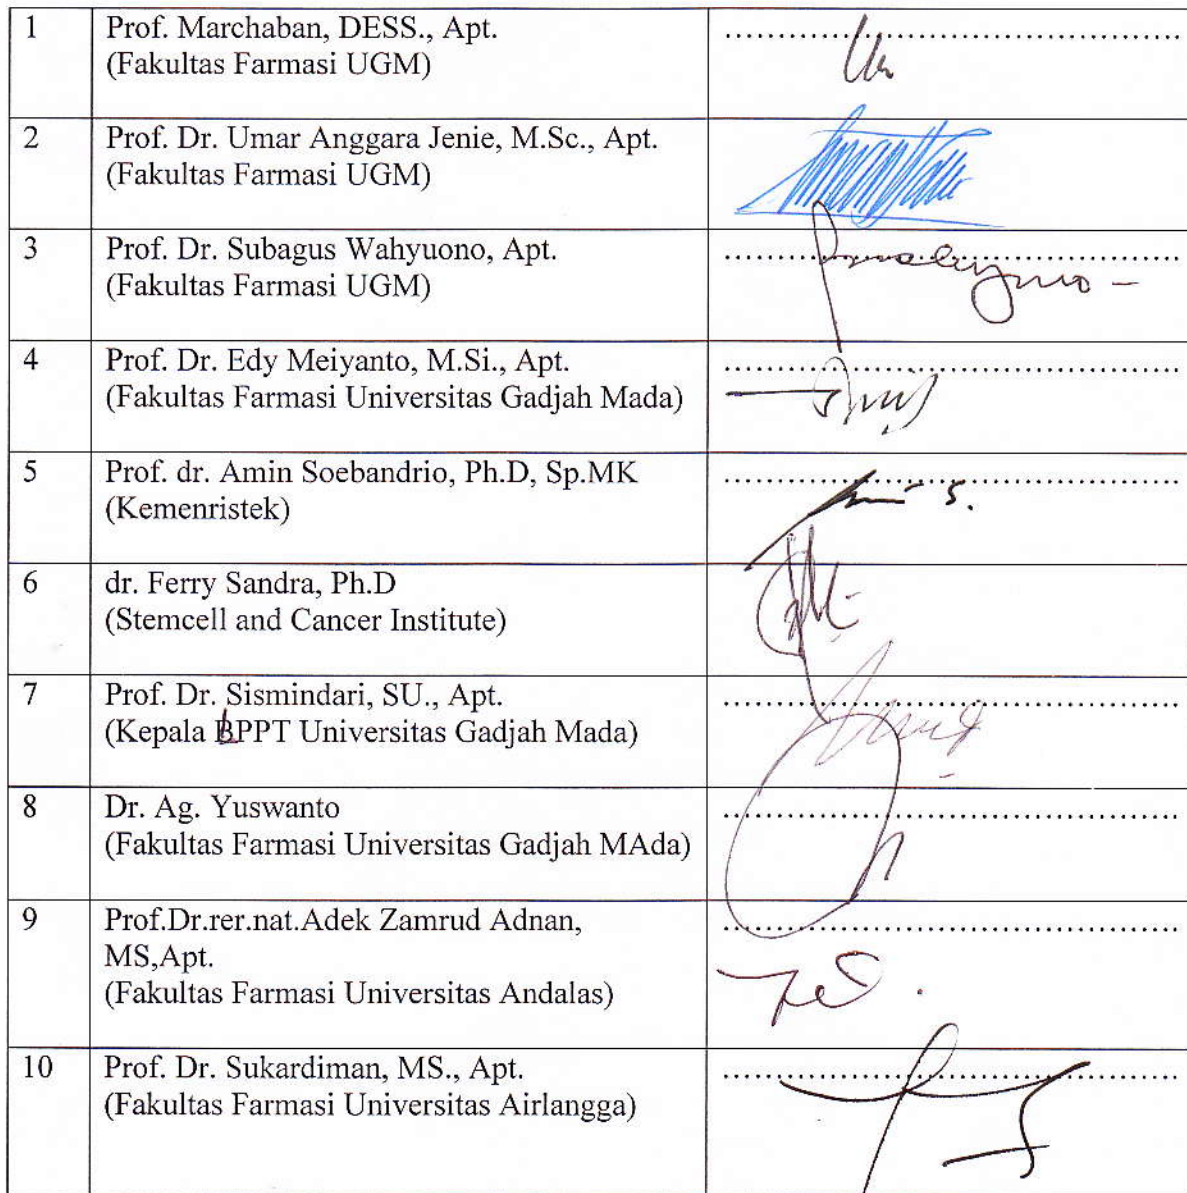 1
Prof. Marchaban, DESS., Apt.
(Fakultas Farmasi UGM)
2
Prof. Dr. Umar Anggara Jenie, M.Sc., Apt.
(Fakultas Farmasi UGM)
3
Prof. Dr. Subagus Wahyuono, Apt.
(Fakultas Farmasi UGM)
4
Prof. Dr. Edy Meiyanto, M.Si., Apt.
(Fakultas Farmasi Universitas Gadjah Mada)
5
Prof. dr. Amin Soebandrio, Ph.D, Sp.MK
(Kemenristek)
6
dr. Ferry Sandra, Ph.D
(Stemcell and Cancer Institute)
7
Prof. Dr. Sismindari, SU., Apt.
(Kepala LPPT Universitas Gadjah Mada)
8
Dr. Ag. Yuswanto
(Fakultas Farmasi Universitas Gadjah MAda)
9
Prof.Dr.rer.nat.Adek Zamrud Adnan,
MS,Apt.
(Fakultas Farmasi Universitas Andalas)
10
Prof. Dr. Sukardiman, MS., Apt.
(Fakultas Farmasi Universitas Airlangga)